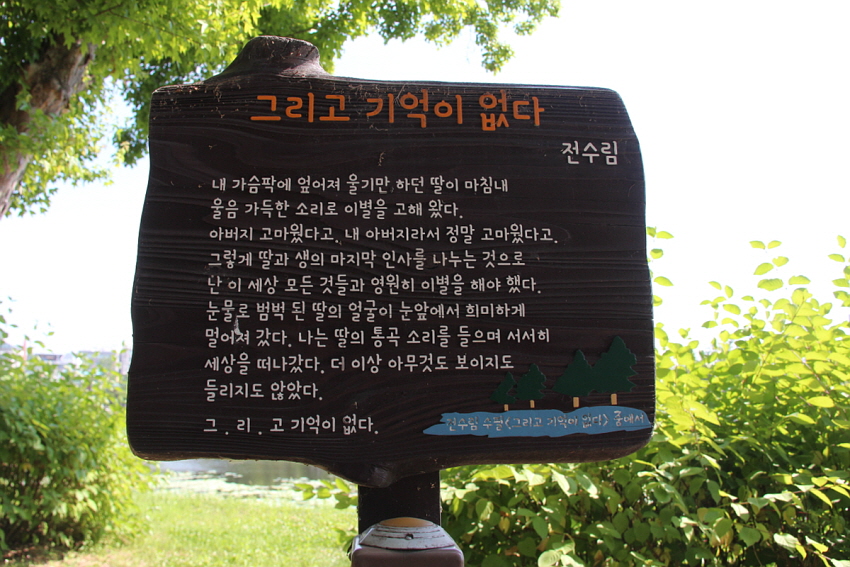 그리고 기억이 없다
전수림
내 가슴팍에 엎어져 울기만 하던 딸이 마침내
울음 가득한 소리로 이별을 고해 왔다.
아버지 고마웠다고. 내 아버지라서 정말 고마웠다고.
그렇게 딸과 생의 마지막 인사를 나누는 것으로
난 이 세상 모든 것들과 영원히 이별을 해야 했다.
눈물로 범벅 된 딸의 얼굴이 눈앞에서 희미하게
멀어져 갔다. 나는 딸의 통곡 소리를 들으며 서서히
세상을 떠나갔다. 더 이상 아무것도 보이지도
들리지도 않았다.
그 . 리 . 고 기억이 없다.
전수림 수필<그리고 기억이 없다> 중에서